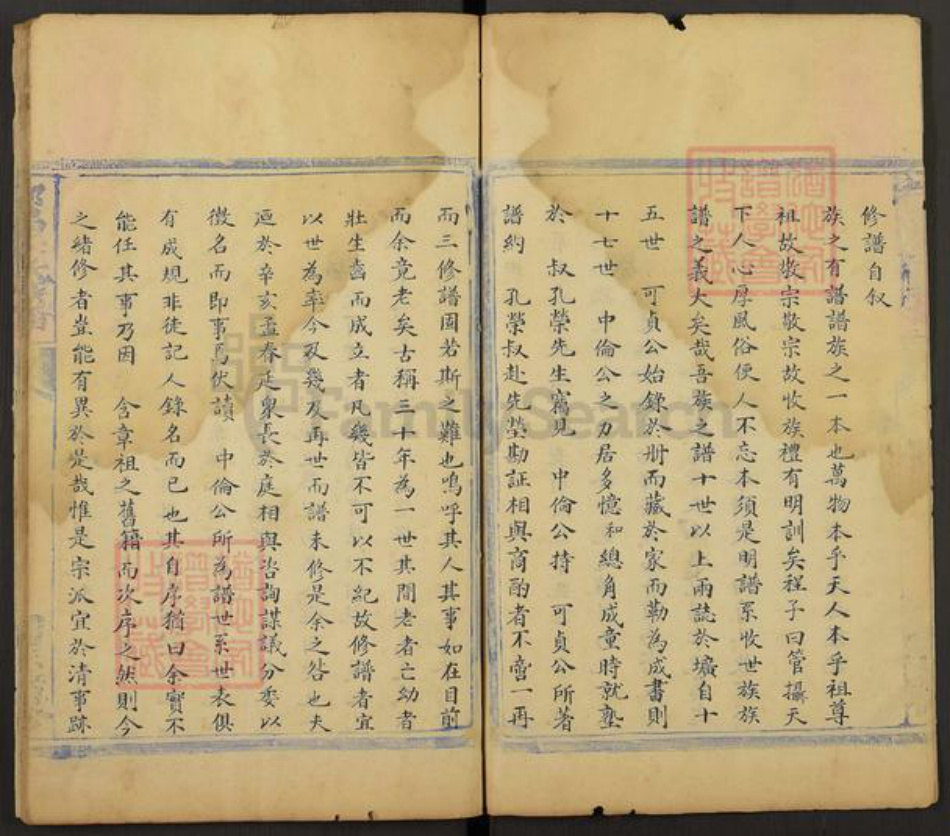 修譜自叙
族之有譜譜族之一本也萬物本乎天人本乎祖尊
祖故敬宗敬宗故收族禮有明訓矣程子曰管攝天
下人心厚風俗使人不忘本須是明譜系收世族族
譜之義大矣哉吾族之譜十世以上兩誌於壙自十
五世 可貞公始錄於册而藏於家而勒為成書則
十七世 中倫公之力居多憶和總角成童時就塾
於 叔孔榮先生竊見 中倫公持 可貞公所著
譜約 孔榮叔赴先塋勘証相與商酌者不啻一再
而三修譜固若斯之難也嗚呼其人其事如在目前
而余竟老矣古稱三十年為一世其間老者亡幼者
壯生齒而成立者凡幾皆不可以不紀故修譜者宜
以世為率今又幾及再世而譜未修是余之咎也夫
爰於辛亥孟春延衆長於庭相與咨詢謀議分委以
徵名而即事焉伏讀 中倫公所為譜世系世表俱
有成規非徒記人錄名而已也其自序猶曰余實不
能任其事乃因 含章祖之舊籍而次序之然則今
之緒修者豈能有異於是哉惟是宗派宜於清事跡
FamilySearch